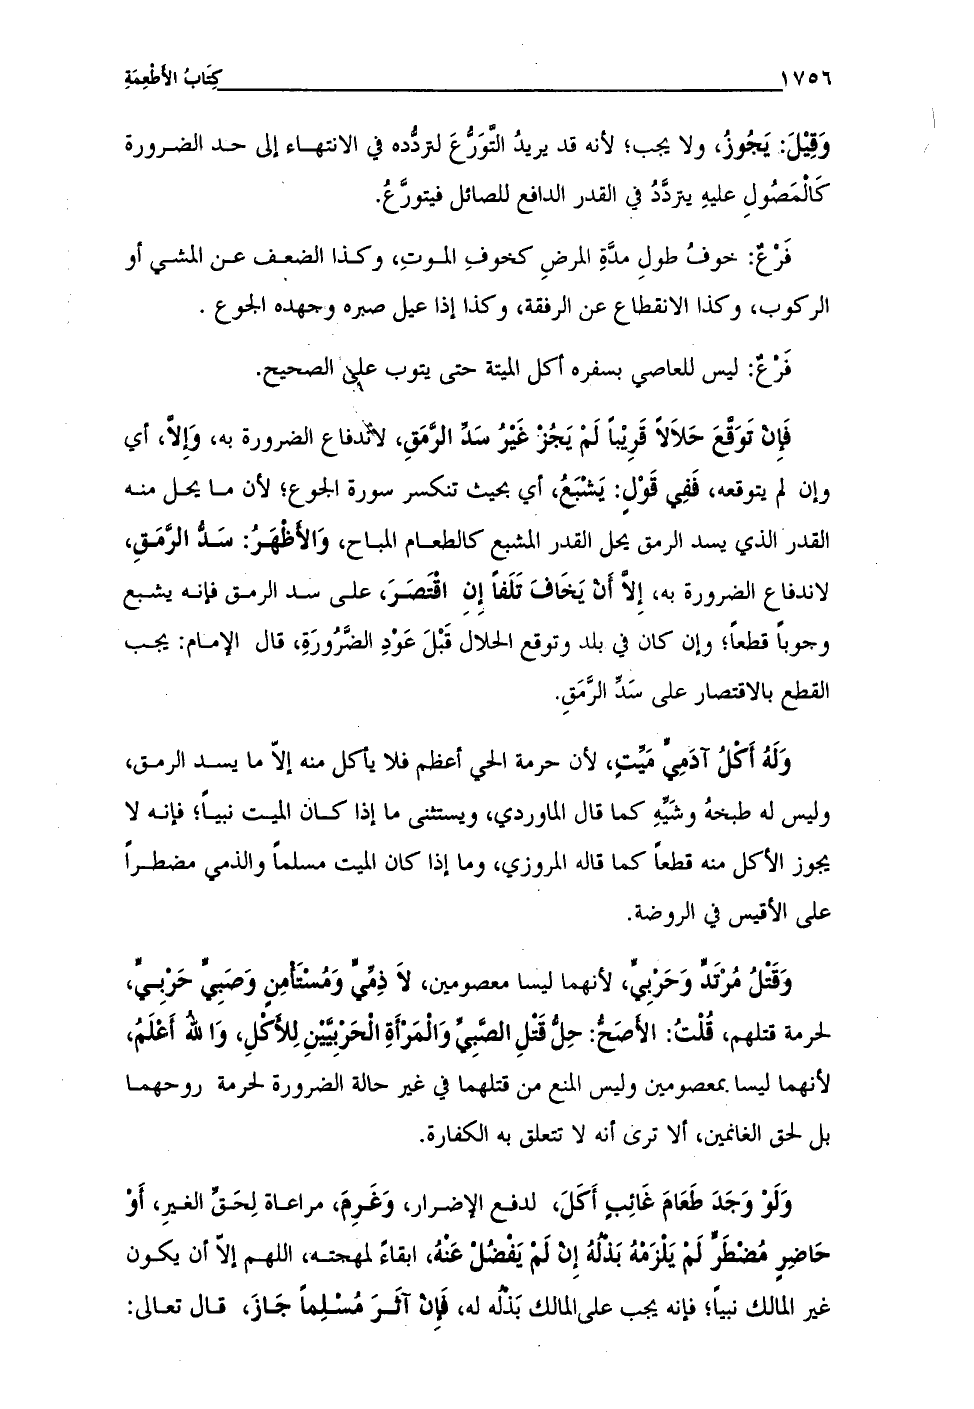 ١٧٥٦ كِتَابُ الأَطْعِمَةِ
وَقِيْلَ: يَجُوزُ، ولا يجب؛ لأنه قد يريدُ التَّوَرُّعَ لتردُّده في الانتهاء إلى حد الضرورة
كَالْمَصُولِ عليهِ يتردَّدُ في القدر الدافع للصائل فيتورَّعُ.
فَرْعٌ: خوفُ طولِ مدَّةِ المرضِ كخوفِ الموتِ، وكذا الضعف عن المشي أو
الركوب، وكذا الانقطاع عن الرفقة، وكذا إذا عيل صبره وجهده الجوع .
فَرْعٌ: ليس للعاصي بسفره أكل الميتة حتى يتوب على الصحيح.
فَإِنْ تَوَقَّعَ حَلاَلاً قَرِيْباً لَمْ يَجُزْ غَيْرُ سَدِّ الرَّمَقِ، لاندفاع الضرورة به، وَإِلاَّ، أي
وإن لم يتوقعه، فَفِي قَوْلٍ: يَشْبَعُ، أي بحيث تنكسر سورة الجوع؛ لأن ما يحل منه
القدر الذي يسد الرمق يحل القدر المشبع كالطعام المباح، وَالأَظْهَرُ: سَدُّ الرَّمَقِ،
لاندفاع الضرورة به، إِلاَّ أَنْ يَخَافَ تَلَفاً إِنِ اقْتَصَرَ، على سد الرمق فإنه يشبع
وجوباً قطعاً؛ وإن كان في بلد وتوقع الحلال قَبْلَ عَوْدِ الضَّرُورَةِ، قال الإمام: يجب
القطع بالاقتصار على سَدِّ الرَّمَقِ.
وَلَهُ أَكْلُ آدَمِيٍّ مَيِّتٍ، لأن حرمة الحي أعظم فلا يأكل منه إلاّ ما يسد الرمق،
وليس له طبخهُ وشَيِّهِ كما قال الماوردي، ويستثنى ما إذا كان الميت نبياً؛ فإنه لا
يجوز الأكل منه قطعاً كما قاله المروزي، وما إذا كان الميت مسلماً والذمي مضطراً
على الأقيس في الروضة.
وَقَتْلُ مُرْتَدٍّ وَحَرْبِيٍّ، لأنهما ليسا معصومين، لاَ ذِمِّيٍّ وَمُسْتَأْمِنٍ وَصَبِيٍّ حَرْبِيٍّ،
لحرمة قتلهم، قُلْتُ: الأَصَحُّ: حِلُّ قَتْلِ الصَّبِيِّ وَالْمَرْأَةِ الْحَرْبِيَّيْنِ لِلأَكْلِ، وَاللهُ أَعْلَمُ،
لأنهما ليسا بمعصومين وليس المنع من قتلهما في غير حالة الضرورة لحرمة روحهما
بل لحق الغانمين، ألا ترى أنه لا تتعلق به الكفارة.
وَلَوْ وَجَدَ طَعَامَ غَائِبٍ أَكَلَ، لدفع الإضرار، وَغَرِمَ، مراعاة لِحَقِّ الغيرِ، أَوْ
حَاضِرٍ مُضْطَرٍّ لَمْ يَلْزَمْهُ بَذْلُهُ إِنْ لَمْ يَفْضُلْ عَنْهُ، ابقاءً لمهجته، اللهم إلاّ أن يكون
غير المالك نبياً؛ فإنه يجب على المالك بَذْلُه له، فَإِنْ آثَرَ مُسْلِماً جَازَ، قال تعالى: